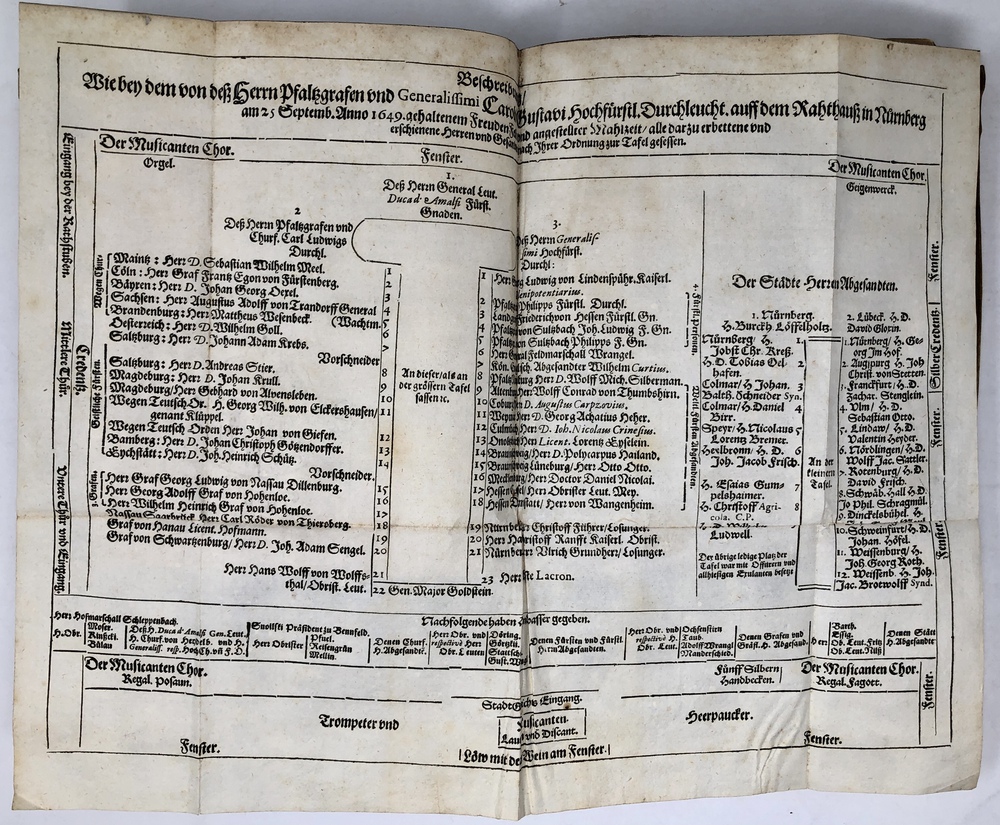 Beschreibung
Wie bey dem von deß Herrn Pfaltzgrafen vnd Generalissimi Caroli Gustavi Hochfürstl. Durchleucht. auff dem Rahthauß in Nürnberg
am 25 Septemb. Anno 1649. gehaltenem Freuden vnd angestellter Mahlzeit / alle darzu erbettene vnd
erschienene Herren vnd nach Ihrer Ordnung zur Tafel gesessen.
Der Musicanten Chor.
Orgel.
Fenster.
Der Musicanten Chor.
Geigenwerck.
Eingang bey der Rathstuben.
Mittlere Thür.
Vntere Thür vnd Eingang.
Credentz.
1.
Deß Herrn General Leut.
Duca d'Amalfi Fürst.
Gnaden.
2
Deß Herrn Pfaltzgrafen vnd
Churf. Carl Ludwigs
Durchl.
3.
Deß Herrn Generalis-
simi Hochfürst.
Durchl:
Wegen Chur-
Maintz: Herr D. Sebastian Wilhelm Meel. 1
Cöln: Herr Graf Frantz Egon von Fürstenberg. 2
Bäyren: Herr D. Johan Georg Oexel. 3
Sachsen: Herr Augustus Adolff von Trandorff General
Brandenburg: Herr Mattheus Wesenbeck. (Wachtm. 4
Oesterreich: Herr D. Wilhelm Goll. 5
Saltzburg: Herr D. Johann Adam Krebs. 6
Vorschneider
Geistliche Fürsten.
Saltzburg: Herr D. Andreas Stier.
Magdeburg: Herr D. Johan Krull. 8
Magdeburg / Herr Gebhard von Alvensleben. 9
Wegen Teutsch Or. H. Georg Wilh. von Elckershausen / 10
genant Klüppel. 11
Wegen Teutsch Orden Herr Johan von Giesen.
Bamberg: Herr D. Johan Christoph Götzendorffer. 12
Eychstätt: Herr D. Joh. Heinrich Schütz. 13
Vorschneider. 14
Grafen.
Herr Graf Georg Ludwig von Nassau Dillenburg.
Herr Georg Adolff Graf von Hohenloe. 15
Herr Wilhelm Heinrich Graf von Hohenloe. 16
Nassau Saarbrück Herr Carl Röder von Thieroberg. 17
Graf von Hanau Licent. Hofmann. 18
Graf von Schwartzenburg / Herr D. Joh. Adam Sengel. 19
20
Herr Hans Wolff von Wolffs- 21
thal / Obrist. Leut.
22 Gen. Major Goldstein.
An dieser / als an
der grössern Tafel
sassen ꝛc.
1 Ludwig von Lindenspühr. Kaiserl.
Plenipotentiarius.
2 Philipps Fürstl. Durchl.
3 Friederich von Hessen Fürstl. Gn.
4 von Sultzbach Joh. Ludwig F. Gn.
5 von Sultzbach Philipps F. Gn.
6 Feldmarschall Wrangel.
Abgesandter Wilhelm Curtius.
8 Herr D. Wolff Mich. Silberman.
9 Wolff Conrad von Thumbshirn.
10 D. Augustus Carpzovius.
11 D. Georg Achatius Heher.
12 D. Ioh. Nicolaus Crinesius.
13 Licent. Lorentz Eyselein.
14 Herr D. Polycarpus Hailand.
15 Lüneburg / Herr Otto Otto.
16 Herr Doctor Daniel Nicolai.
17 Herr Obrister Leut. Mey.
18 Herr von Wangenheim.
19 Christoff Führer / Losunger.
20 Ranfft Kaiserl. Obrist.
21 Vlrich Grundherr / Losunger.
23 Lacron.
4. Fürstl. Personen.
Welt. Fürsten Abgesandten.
Der Städte Herren Abgesandten.
1. Nürnberg.
H. Burckh Löffelholtz.
Nürnberg / H. 1.
Jobst Chr. Kreß.
H. D. Tobias Oel- 2
hafen.
Colmar / H. Johan. 3
Balth. Schneider Syn.
Colmar / H. Daniel 4
Birr.
Speyr / H. Nicolaus 5
Lorentz Bremer.
Heylbronn / H. D. 6
Joh. Jacob Frisch.
H. Esaias Gum- 7
pelshaimer.
H. Christoff Agri- 8
cola. C.P.
Ludwell.
Der übrige ledige Platz der
Tafel war mit Officirern vnd
allhiesigen Exulanten besetzt
An der
kleinern
Tafel.
2. Lübeck. H. D.
David Gloxin.
1. Nürnberg / H. Ge-
org Im Hof.
2. Augspurg H. Joh
Christ. von Stetten.
Franckfurt / H. D.
Zachar. Stenglein.
4. Vlm / H. D.
Sebastian Otto.
5. Lindaw / H. D.
Valentin Heyder.
6. Nördlingen / H. D.
Wolff Jac. Sattler.
7. Rotenburg / H. D.
David Frisch.
8. Schwäb. Hall H. D.
Jo Phil. Schragmül.
9. Dinckelsbühel. H.
10. Schweinfurt / H. D.
Johan. Höfel.
11. Weissenburg / H.
Joh. Georg Roth.
12. Weissenb. H. Joh.
Jac. Brotwolff Synd.
Fenster.
Silber Credentz.
Fenster.
Fenster.
Fenster.
Nachfolgende haben Wasser gegeben.
Herr Hofmarschall Schleppenbach.
H. Obr.
Moser.
Kinßcki.
Bülau
Deß H. Duca d' Amalfi Gen. Leut.
H. Churf. von Heydelb. vnd H.
Generaliss. resp. Hoch Ch. vñ F. D.
Snoilski Präsident zu Bennfeld.
Herr Obrister
Pfuel.
Reisengrün
Mellin.
Denen Churf.
H. Abgesandtẽ.
Herr Obr. vnd
respectivè H.
Obr. Leuten
Döring.
Görtzki.
Denen Fürsten vnd Fürstl.
Herrn Abgesandten.
Herr Obr. vnd
respectivè H.
Obr. Leut.
Ochsenstirn
Taub.
Adolff Wrangl
Manderschied.
Denen Grafen vnd
Gräfl. H. Abgesand.
Barth.
Essig.
Ob. Leut. Frin
Ob. Leut. Nütz
Denen Stätt
H. Abgesand
Der Musicanten Chor.
Regal. Posaun.
Fünff Silbern
Handbecken.
Der Musicanten Chor.
Regal. Fagott.
Eingang.
Trompeter vnd
Musicanten.
vnd Discant.
Heerpaucker.
Fenster.
Löw mit dem Wein am Fenster.
Fenster.